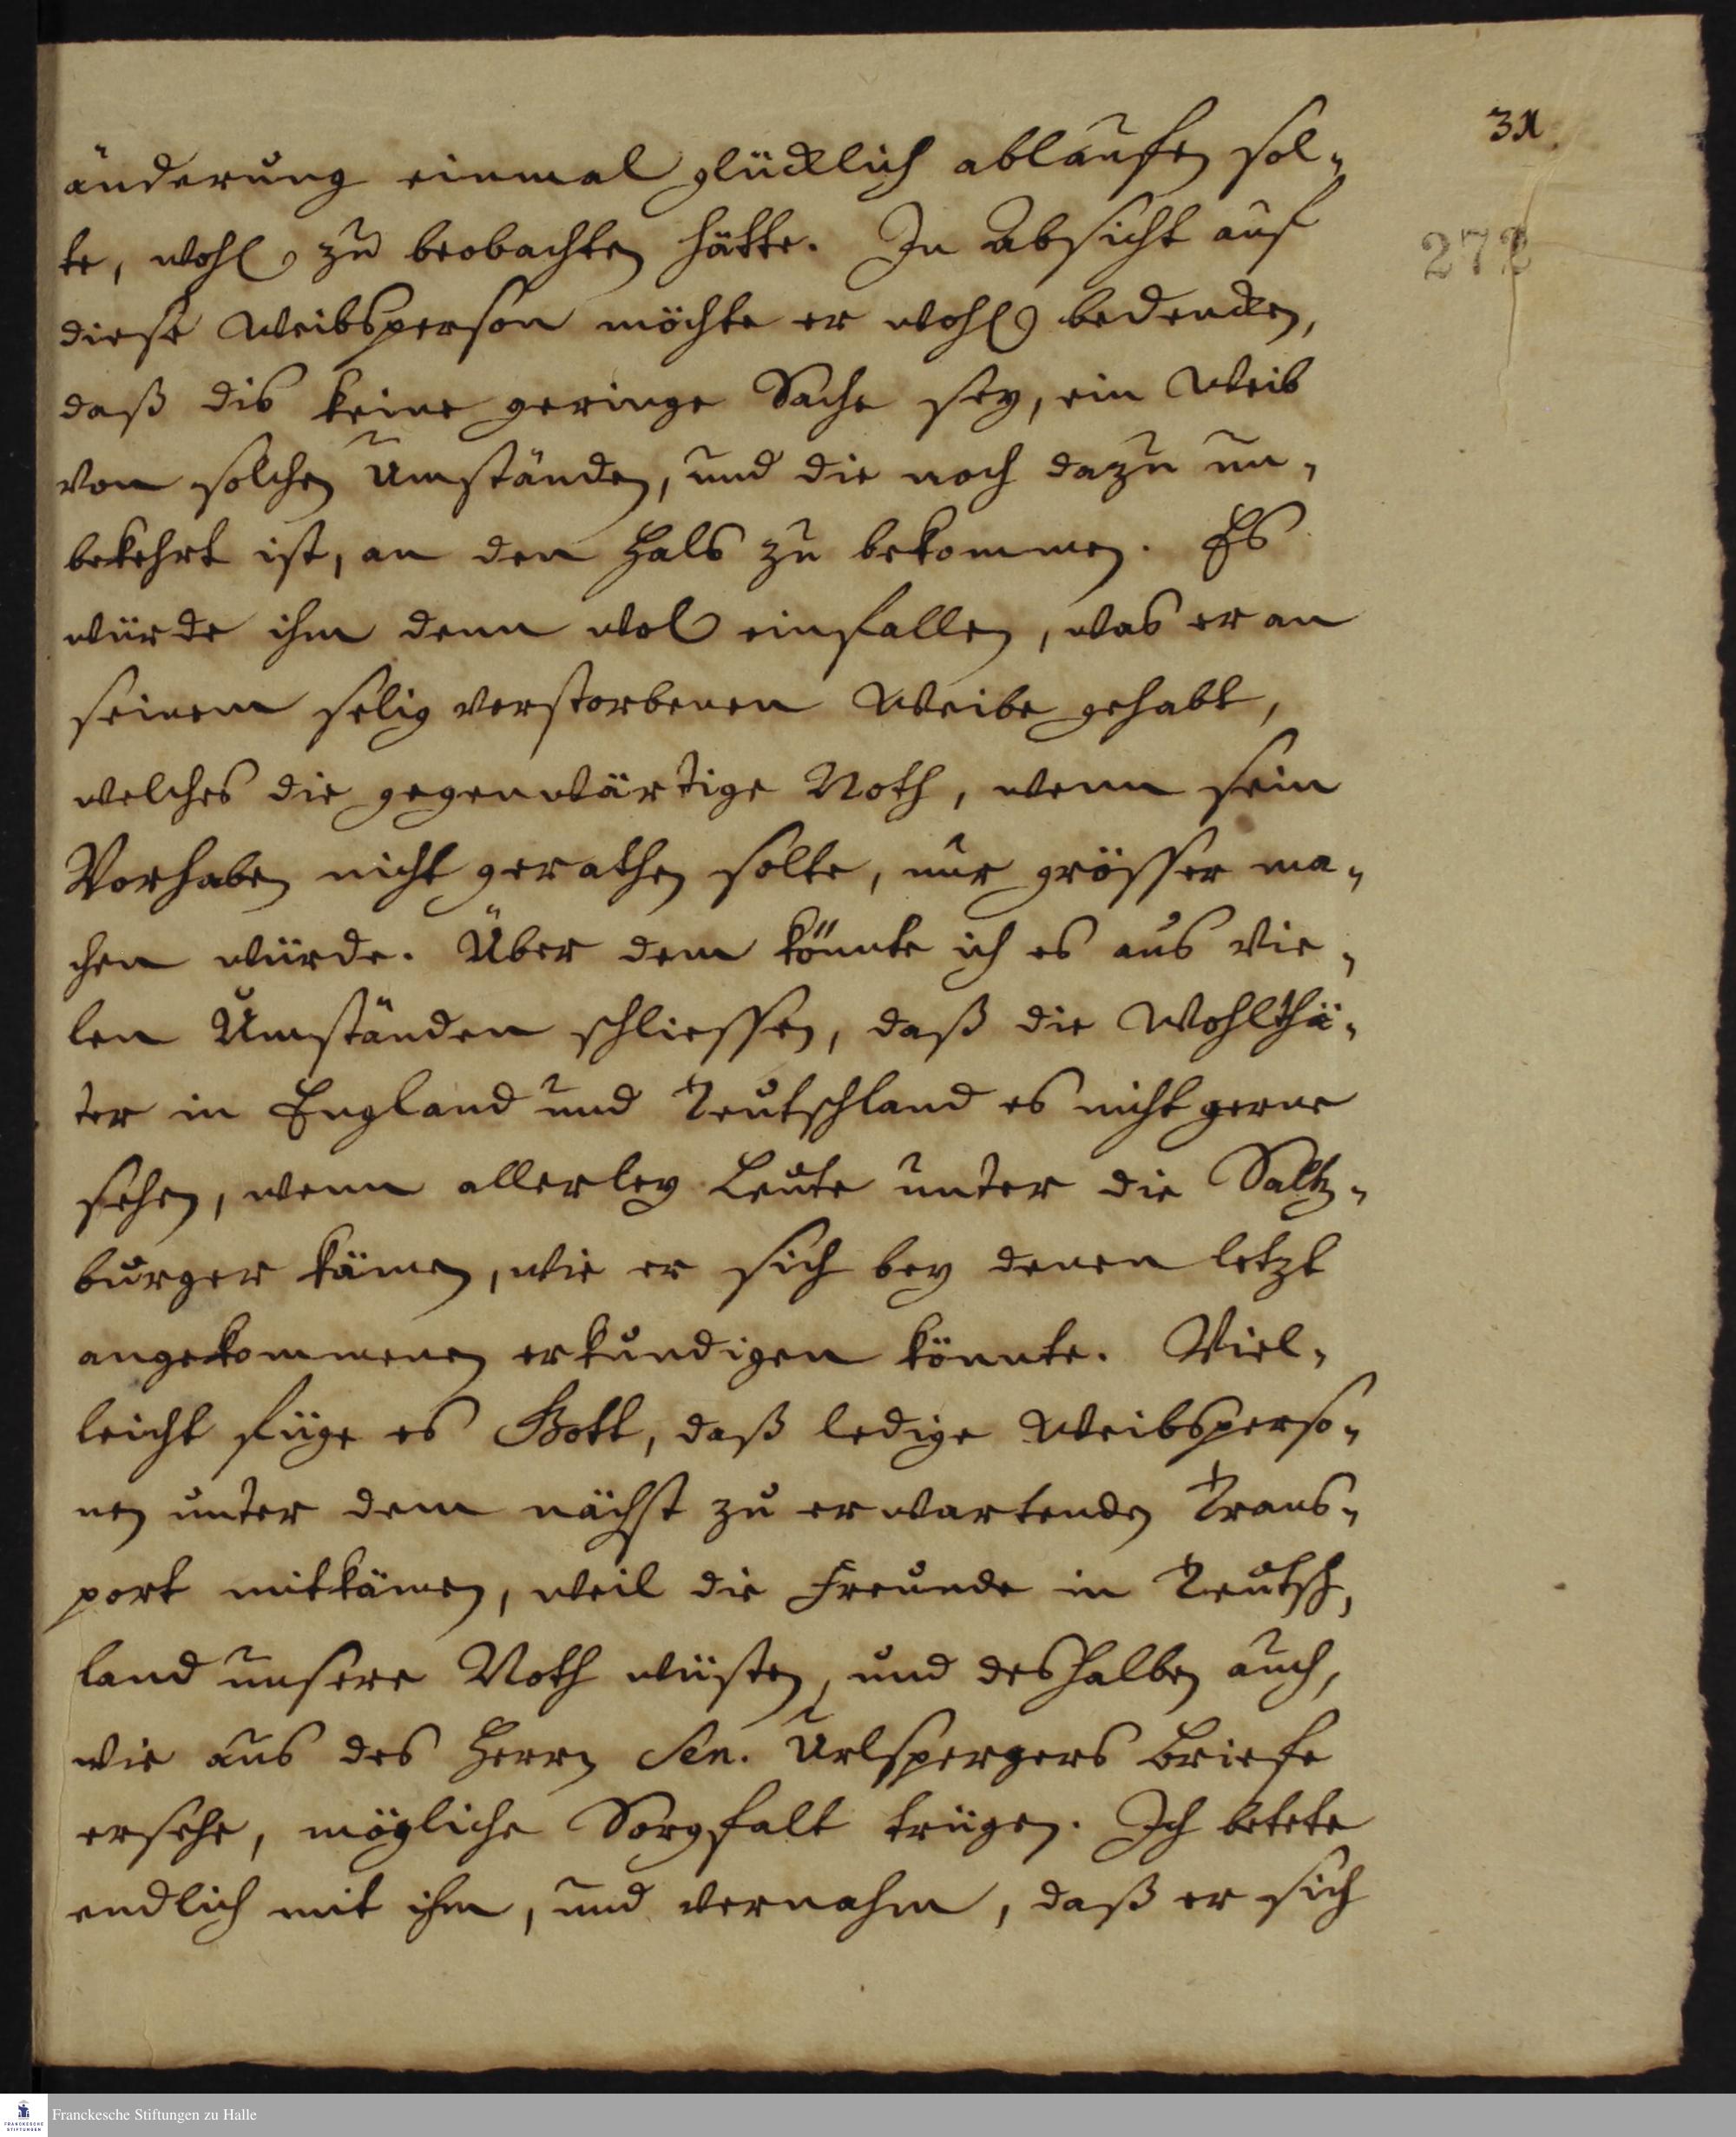 31.
272
änderung einmal glücklich ablaufen sol-
te, wohl zu beobachten hätte. In Absicht auf
diese Weibsperson möchte er wohl bedencken,
daß dis keine geringe Sache sey, ein Weib
von solchen Umständen, und die noch dazu un-
bekehrt ist, an den Hals zu bekommen. Es
würde ihm denn wol einfallen, was er an
seinem selig verstorbenen Weibe gehabt,
welches die gegenwärtige Noth, wenn sein
Vorhaben nicht gerathen solte, nur grösser ma-
chen würde. Über dem könnte ich es aus vie-
len Umständen schliessen, daß die Wohlthä-
ter in England und Teutschland es nicht gerne
sehen, wenn allerley Leute unter die Saltz-
burger kämen, wie er sich bey denen letzt
angekommenen erkundigen könnte. Viel-
leicht füge es Gott, daß ledige Weibsperso-
nen unter dem nächst zu erwartenden Trans-
port mitkämen, weil die Freunde in Teutsch-
land unsere Noth wüsten, und deshalben auch,
wie aus des Herrn Sen. Urlspergers Briefe
ersehe, mögliche Sorgfalt trügen. Ich betete
endlich mit ihm, und vernahm, daß er sich
Franckesche Stiftungen zu Halle